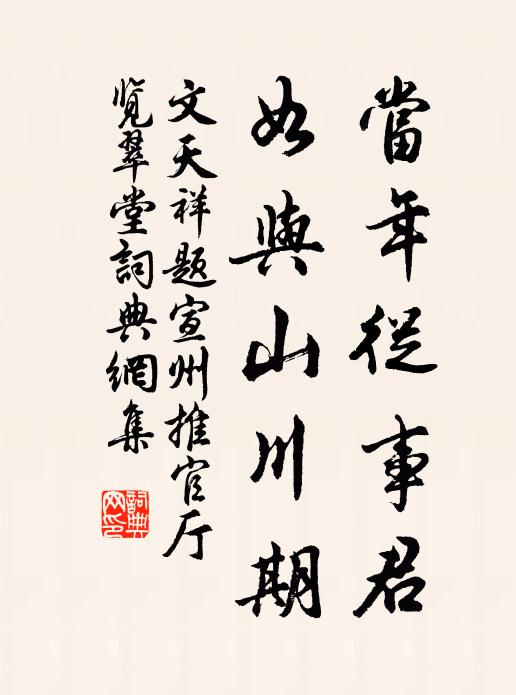 當年從事君
如與山川期
文天祥題宣州推官厅
覽翠堂詞典網集
詞典
网印